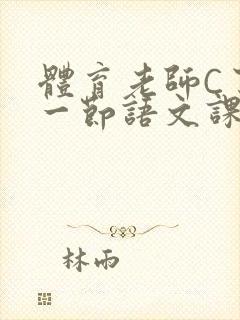 體育老師C
一節語文課
林雨